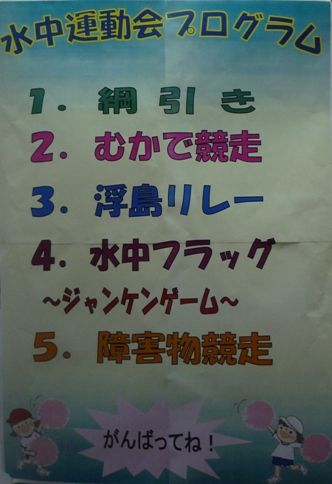 水中運動会プログラム
1. 綱引き
2. むかで競走
3. 浮島リレー
4. 水中フラッグ
～ジャンケンゲーム～
5. 障害物競走
がんばってね!